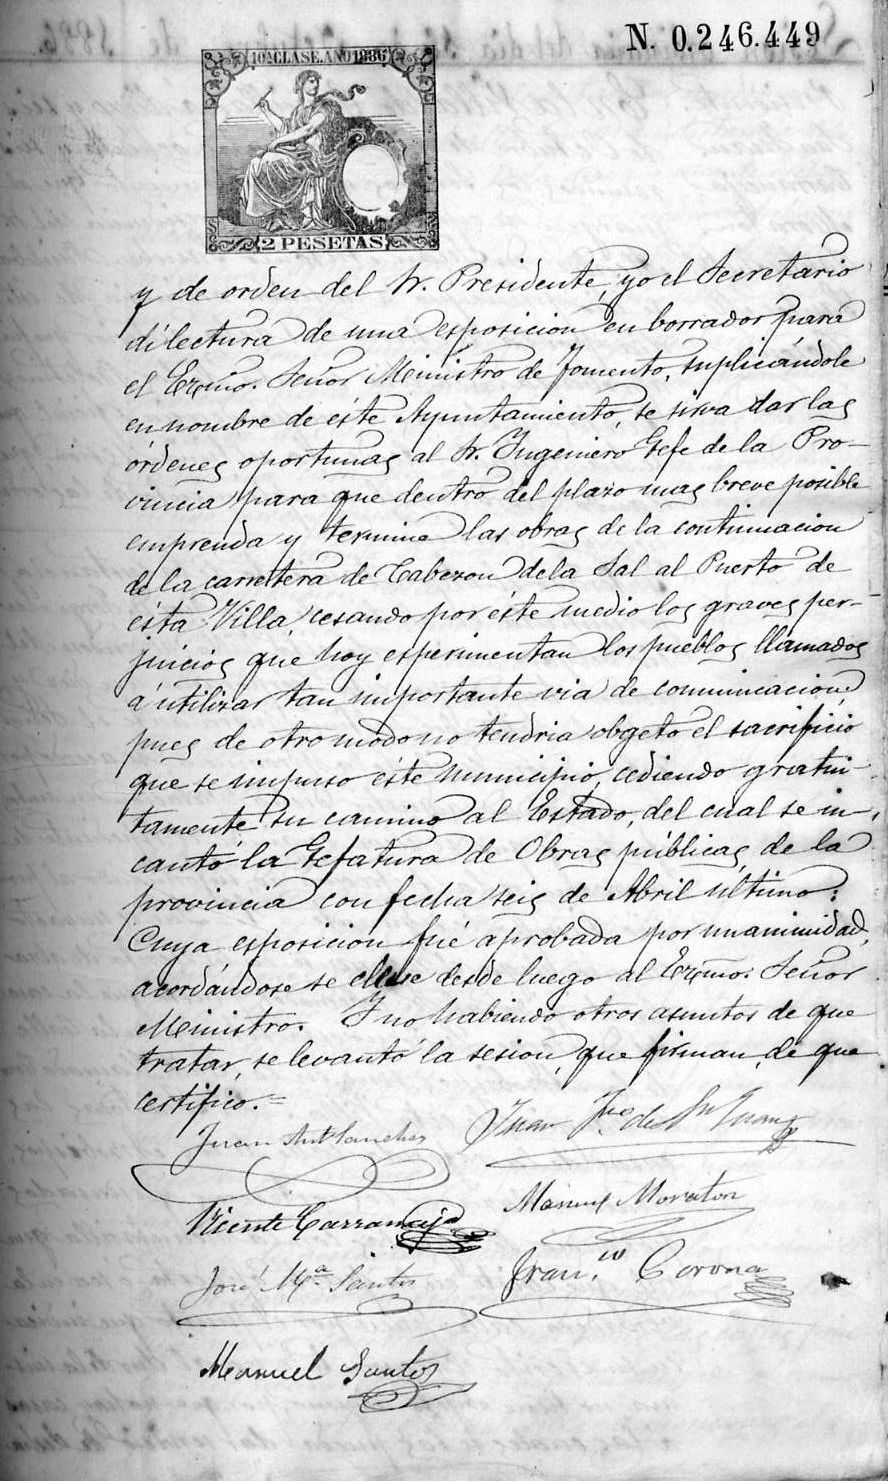 N. 0.246.449
10ª CLASE. AÑO 1886
2 PESETAS
y de orden del Sr. Presidente, yo el Secretario
dí lectura de una esposicion en borrador para
el Ezcmo. Señor Ministro de Fomento, suplicándole
en nombre de éste Ayuntamiento, se sirva dar las
órdenes oportunas al Sr. Ingeniero Gefe de la Pro-
vincia para que dentro del plazo mas breve posible
emprenda y termine las obras de la continuacion
de la carretera de Cabezon de la Sal al Puerto de
ésta Villa, cesando por éste medio los graves per-
juicios que hoy esperimentan los pueblos llamados
á utilizar tan importante via de comunicacion,
pues de otro modo no tendria obgeto el sacrificio
que se impuso éste Municipio, cediendo gratui-
tamente su camino al Estado, del cual se in-
cautó la Gefatura de Obras públicas de la
provincia con fecha seis de Abril último:
Cuya esposicion fué aprobada por unanimidad,
acordándose se eleve desde luego al Ezcmo. Señor
Ministro. Y no habiendo otros asuntos de que
tratar, se levantó la sesion, que firman, de que
certifico.=
Juan Ant Sanchez
Juan
Vicente Carranceja
Manuel Moraton
José Mª Santos
Fran.co Corona
Manuel Santos